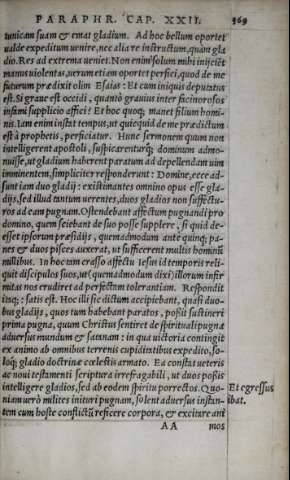 PARAPHR. CAP. XXII. 369
tunicam suam & emat gladium. Ad hoc bellum oportet
ualde expeditum uenire, nec alia re instructum, quàm gla
dio. Res ad extrema ueniet. Non enim solum mihi inijciẽt
manus uiolentas, uerum etiam oportet perfici, quod de me
futurum prædixit olim Esaias: Et cum iniquis deputatus
est. Si graue est occidi, quantò grauius inter facinorosos
infami supplicio affici? Et hoc quoq; manet filium homi-
nis. Iam enim instat tempus, ut quicquid de me prædictum
est à prophetis, perficiatur. Hunc sermonem quum non
intelligerent apostoli, suspicarenturq́; dominum admo-
nuisse, ut gladium haberent paratum ad depellendam uim
imminentem, simpliciter responderunt: Domine, ecce ad-
sunt iam duo gladij: existimantes omnino opus esse gla-
dijs, sed illud tantum uerentes, duos gladios non suffectu-
ros ad eam pugnam. Ostendebant affectum pugnandi pro
domino, quem sciebant de suo posse supplere, si quid de-
esset ipsorum præsidijs, quemadmodum ante quinq; pa-
nes & duos pisces auxerat, ut sufficerent multis hominũ
millibus. In hoc tam crasso affectu Iesus id temporis reli-
quit discipulos suos, ut (quemadmodum dixi) illorum infir
mitas nos erudiret ad perfectam tolerantiam. Respondit
itaq; : Satis est. Hoc illi sic dictum accipiebant, quasi duo-
bus gladijs, quos tum habebant paratos, possit sustineri
prima pugna, quum Christus sentiret de spirituali pugna
aduersus mundum & satanam: in qua uictoria contingit
ex animo ab omnibus terrenis cupiditatibus expedito, so-
loq́; gladio doctrinæ cœlestis armato. Ea constat ueteris
ac noui testamenti scriptura irrefragabili, ut duos possis
intelligere gladios, sed ab eodem spiritu porrectos. Quo-
niam uerò milites inituri pugnam, solent aduersus instan-
tem cum hoste conflictũ reficere corpora, & excitare ani
Et egressus
ibat.
AA mos